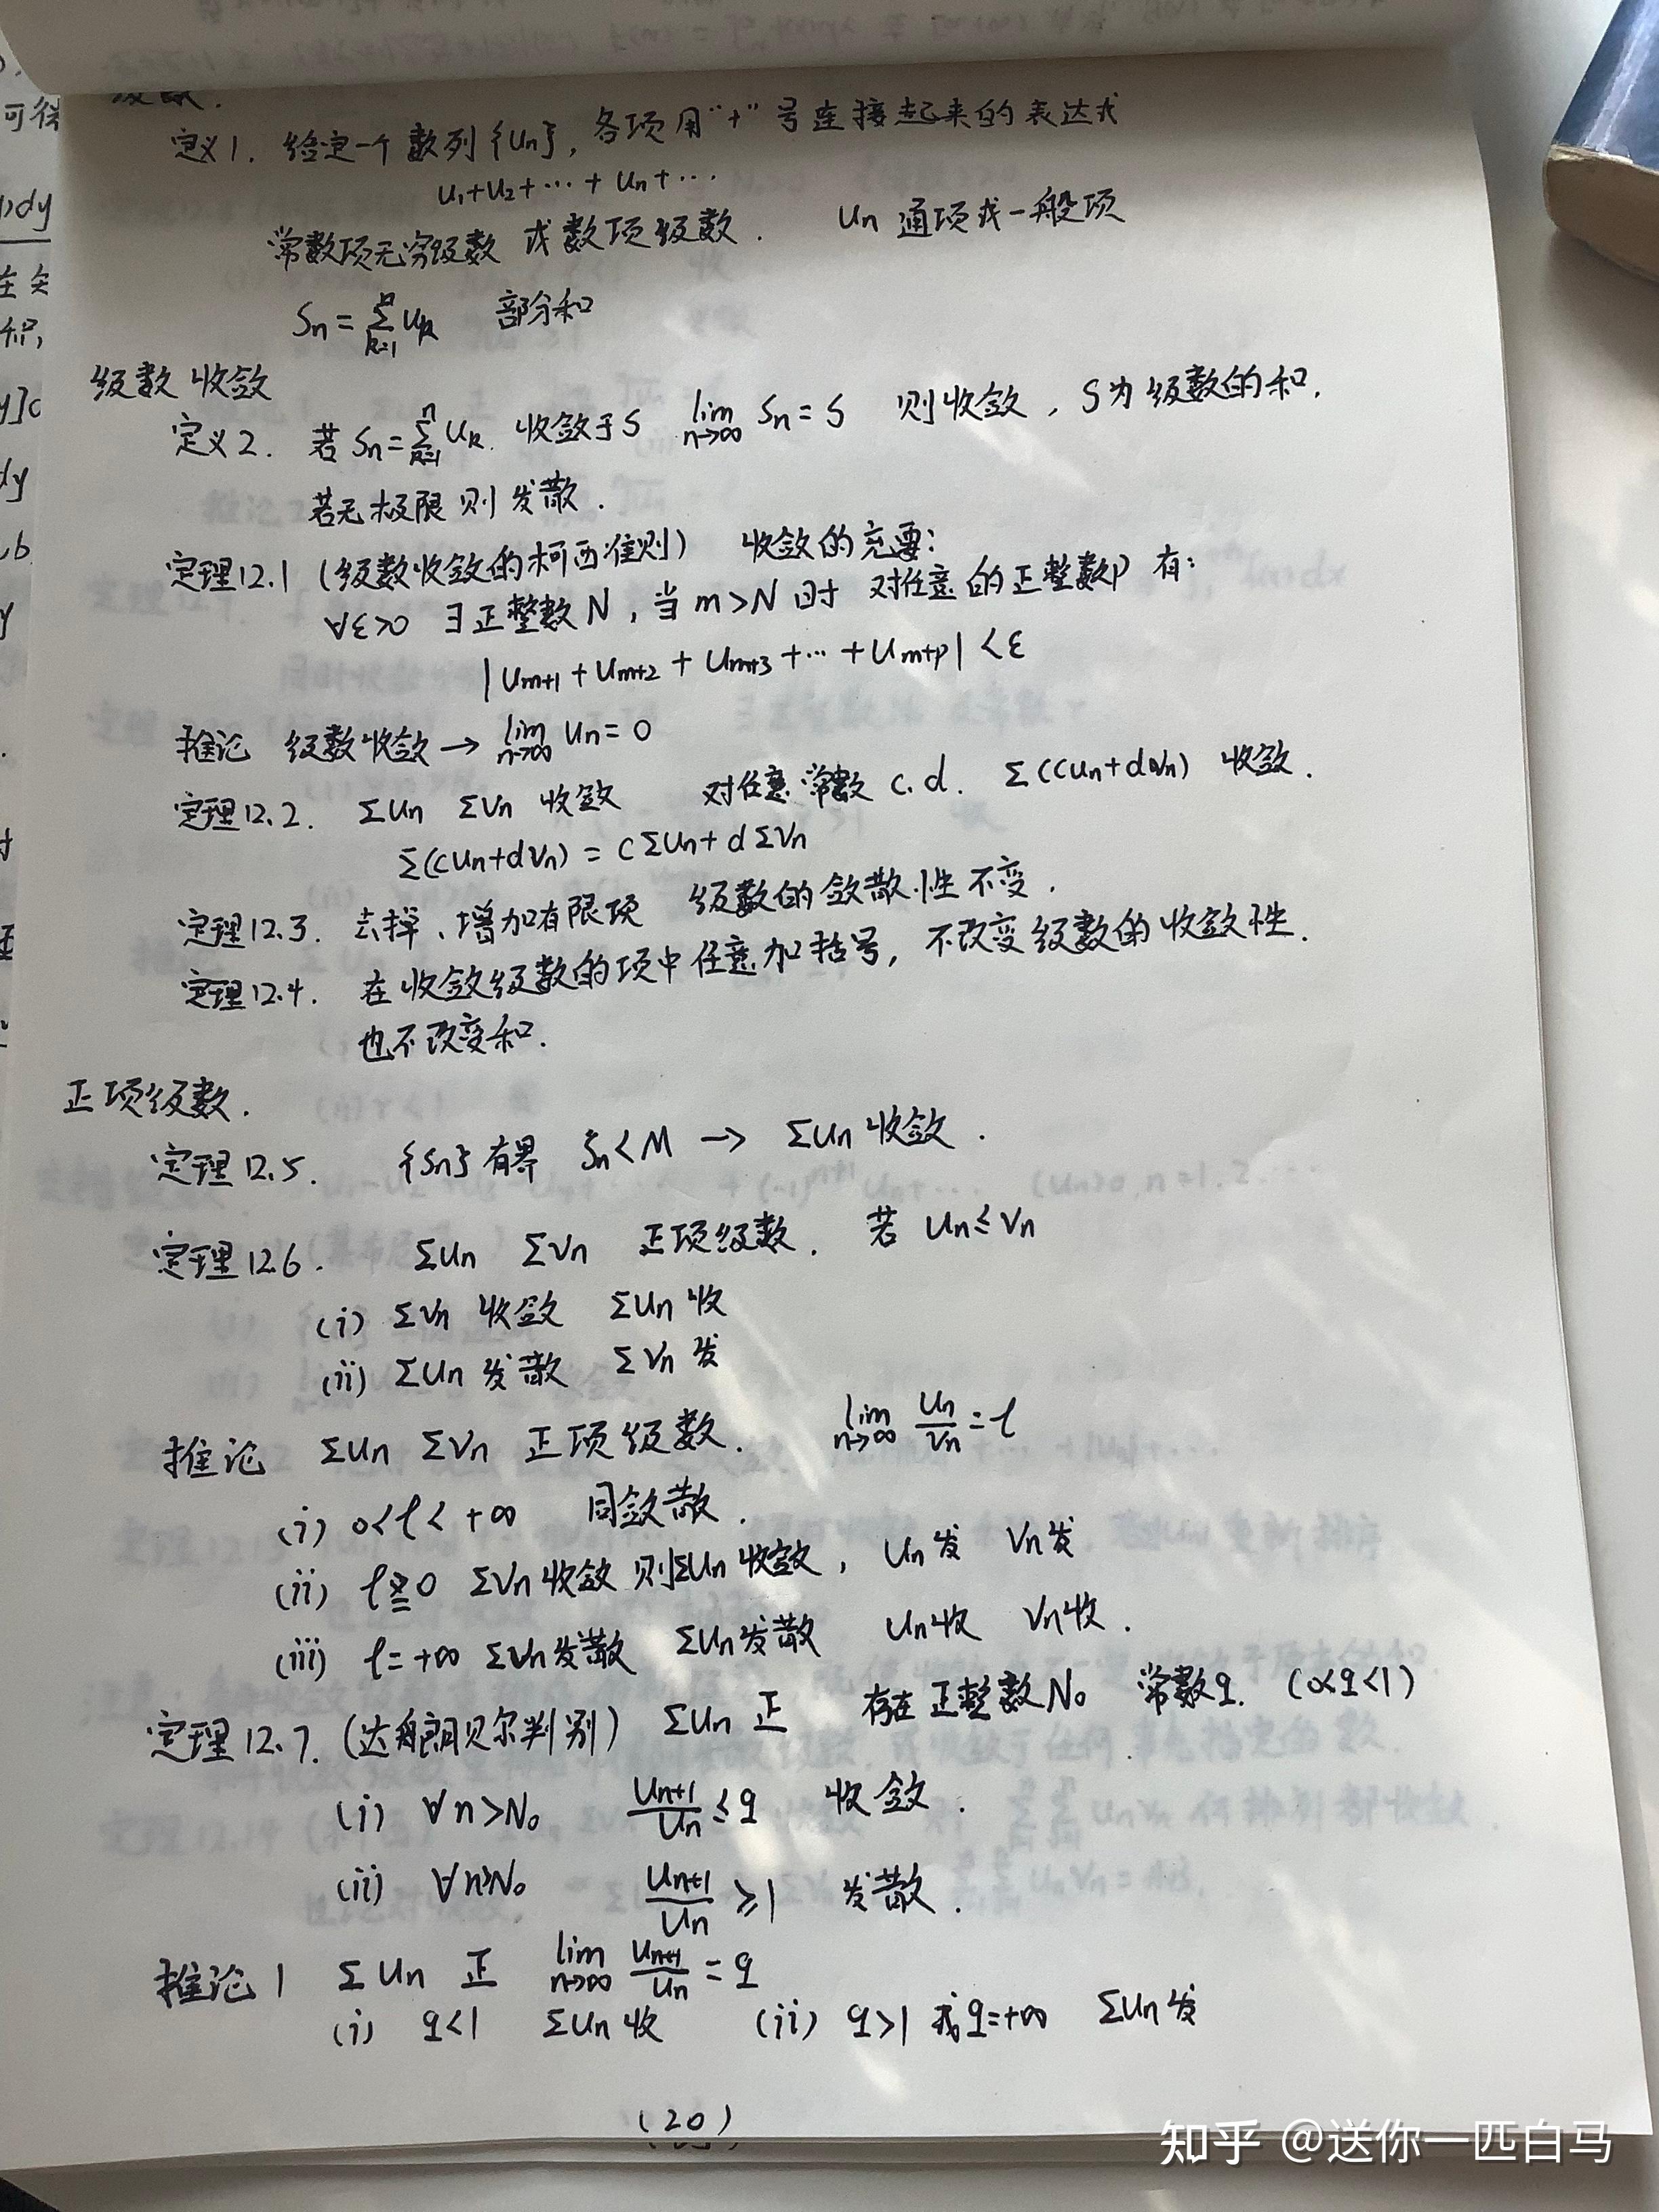 级数.
定义1. 给定一个数列{Un}, 各项用"+"号连接起来的表达式
U₁+U₂+…+Un+…
常数项无穷级数 或数项级数. Un 通项或一般项
Sn=∑_{k=1}^{n}Uk 部分和
级数收敛
定义2. 若Sn=∑_{k=1}^{n}Uk. 收敛于S lim_{n→∞} Sn=S 则收敛, S为级数的和.
若无极限则发散.
定理12.1 (级数收敛的柯西准则) 收敛的充要:
∀ε>0 ∃正整数N, 当m>N时 对任意的正整数p有:
|Um+1+Um+2+Um+3+…+Um+p|<ε
推论 级数收敛→lim_{n→∞} Un=0
定理12.2. ΣUn ΣVn 收敛 对任意常数 c.d. Σ(cUn+dVn) 收敛.
Σ(cUn+dVn)=cΣUn+dΣVn
定理12.3. 去掉、增加有限项 级数的敛散性不变.
定理12.4. 在收敛级数的项中任意加括号, 不改变级数的收敛性.
也不改变和.
正项级数.
定理12.5. {Sn}有界 Sn<M → ΣUn收敛.
定理12.6. ΣUn ΣVn 正项级数. 若 Un≤Vn
(i) ΣVn 收敛 ΣUn 收
(ii) ΣUn 发散 ΣVn 发
推论 ΣUn ΣVn 正项级数. lim_{n→∞} Un/Vn=l
(i) 0<l<+∞ 同敛散.
(ii) l=0 ΣVn收敛 则ΣUn收敛, Un发 Vn发
(iii) l=+∞ ΣVn发散 ΣUn发散 Un收 Vn收.
定理12.7. (达朗贝尔判别) ΣUn 正 存在正整数N₀ 常数q. (0<q<1)
(i) ∀n>N₀ Un+1/Un≤q 收敛.
(ii) ∀n>N₀ Un+1/Un≥1 发散.
推论1 ΣUn 正 lim_{n→∞} Un+1/Un=q
(i) q<1 ΣUn收 (ii) q>1 或q=+∞ ΣUn发
(20)
知乎 @送你一匹白马